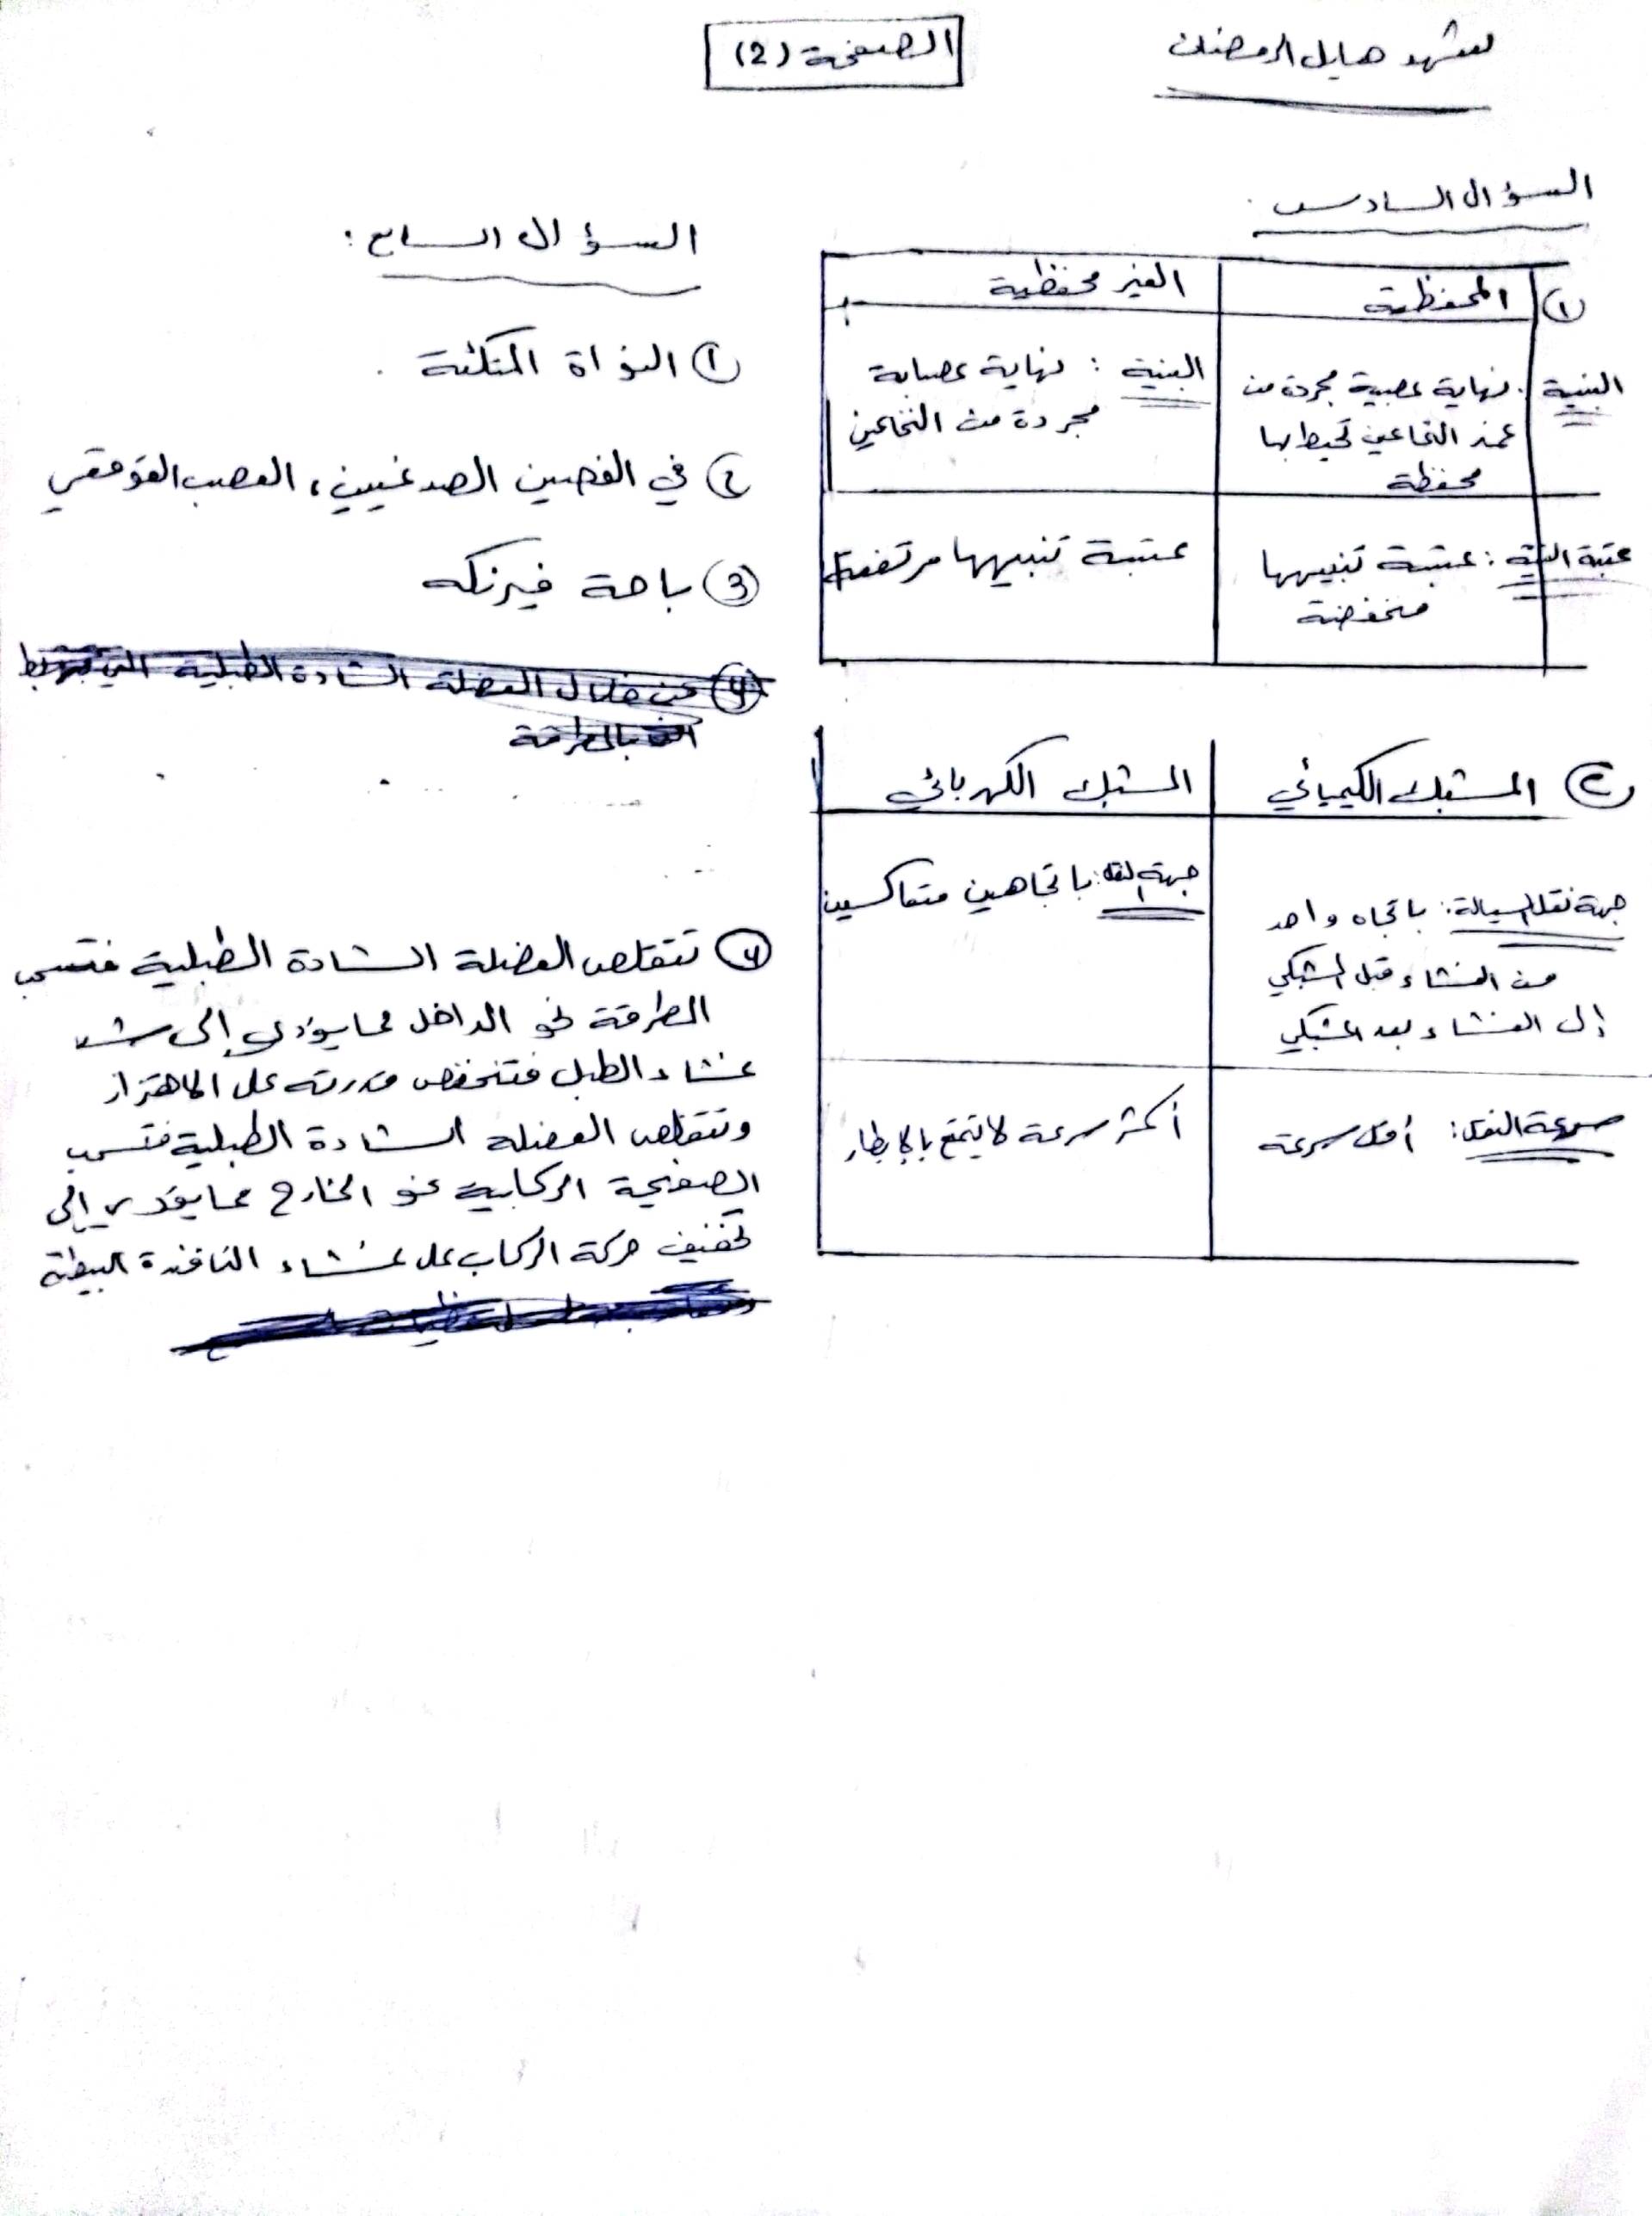 الصفحة (2)
هايل الرمضان
السؤال السادس
① المحفظية
الغير محفظية
البنية: نهاية عصبية مجردة من
غمد النخاعين تحيط بها
محفظة
البنية : نهاية عصبية
مجردة من النخاعين
عتبة التنبيه : عتبة تنبيهها
منخفضة
عتبة تنبيهها مرتفعة
② المشبك الكيميائي
المشبك الكهربائي
جهة نقل السيالة: باتجاه واحد
من الغشاء قبل المشبكي
إلى الغشاء بعد المشبكي
جهة النقل: باتجاهين متعاكسين
سرعة النقل: أقل سرعة
أكثر سرعة لا يتمتع بالإبطاء
السؤال السابع :
① النواة المتكئة
② في الفصين الصدغيين، العصب القوقعي
③ باحة فيرنكه
④ من خلال العضلة الشادة الطبلية التي
بالمطرقة
④ تتقلص العضلة الشادة الطبلية فتسحب
المطرقة نحو الداخل مما يؤدي إلى شد
غشاء الطبل فتنخفض قدرته على الاهتزاز
وتتقلص العضلة الشادة الطبلية فتسحب
الصفيحة الركابية نحو الخارج مما يؤدي إلى
تخفيف حركة الركاب على غشاء النافذة البيضية